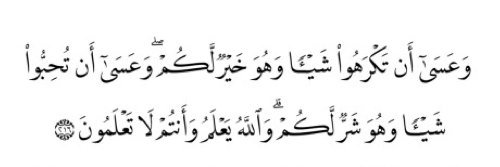 وَعَسَىٰٓ أَن تَكْرَهُوا۟ شَيْـًٔا وَهُوَ خَيْرٌ لَّكُمْ ۖ وَعَسَىٰٓ أَن تُحِبُّوا۟
شَيْـًٔا وَهُوَ شَرٌّ لَّكُمْ ۗ وَٱللَّهُ يَعْلَمُ وَأَنتُمْ لَا تَعْلَمُونَ ۝٢١٦